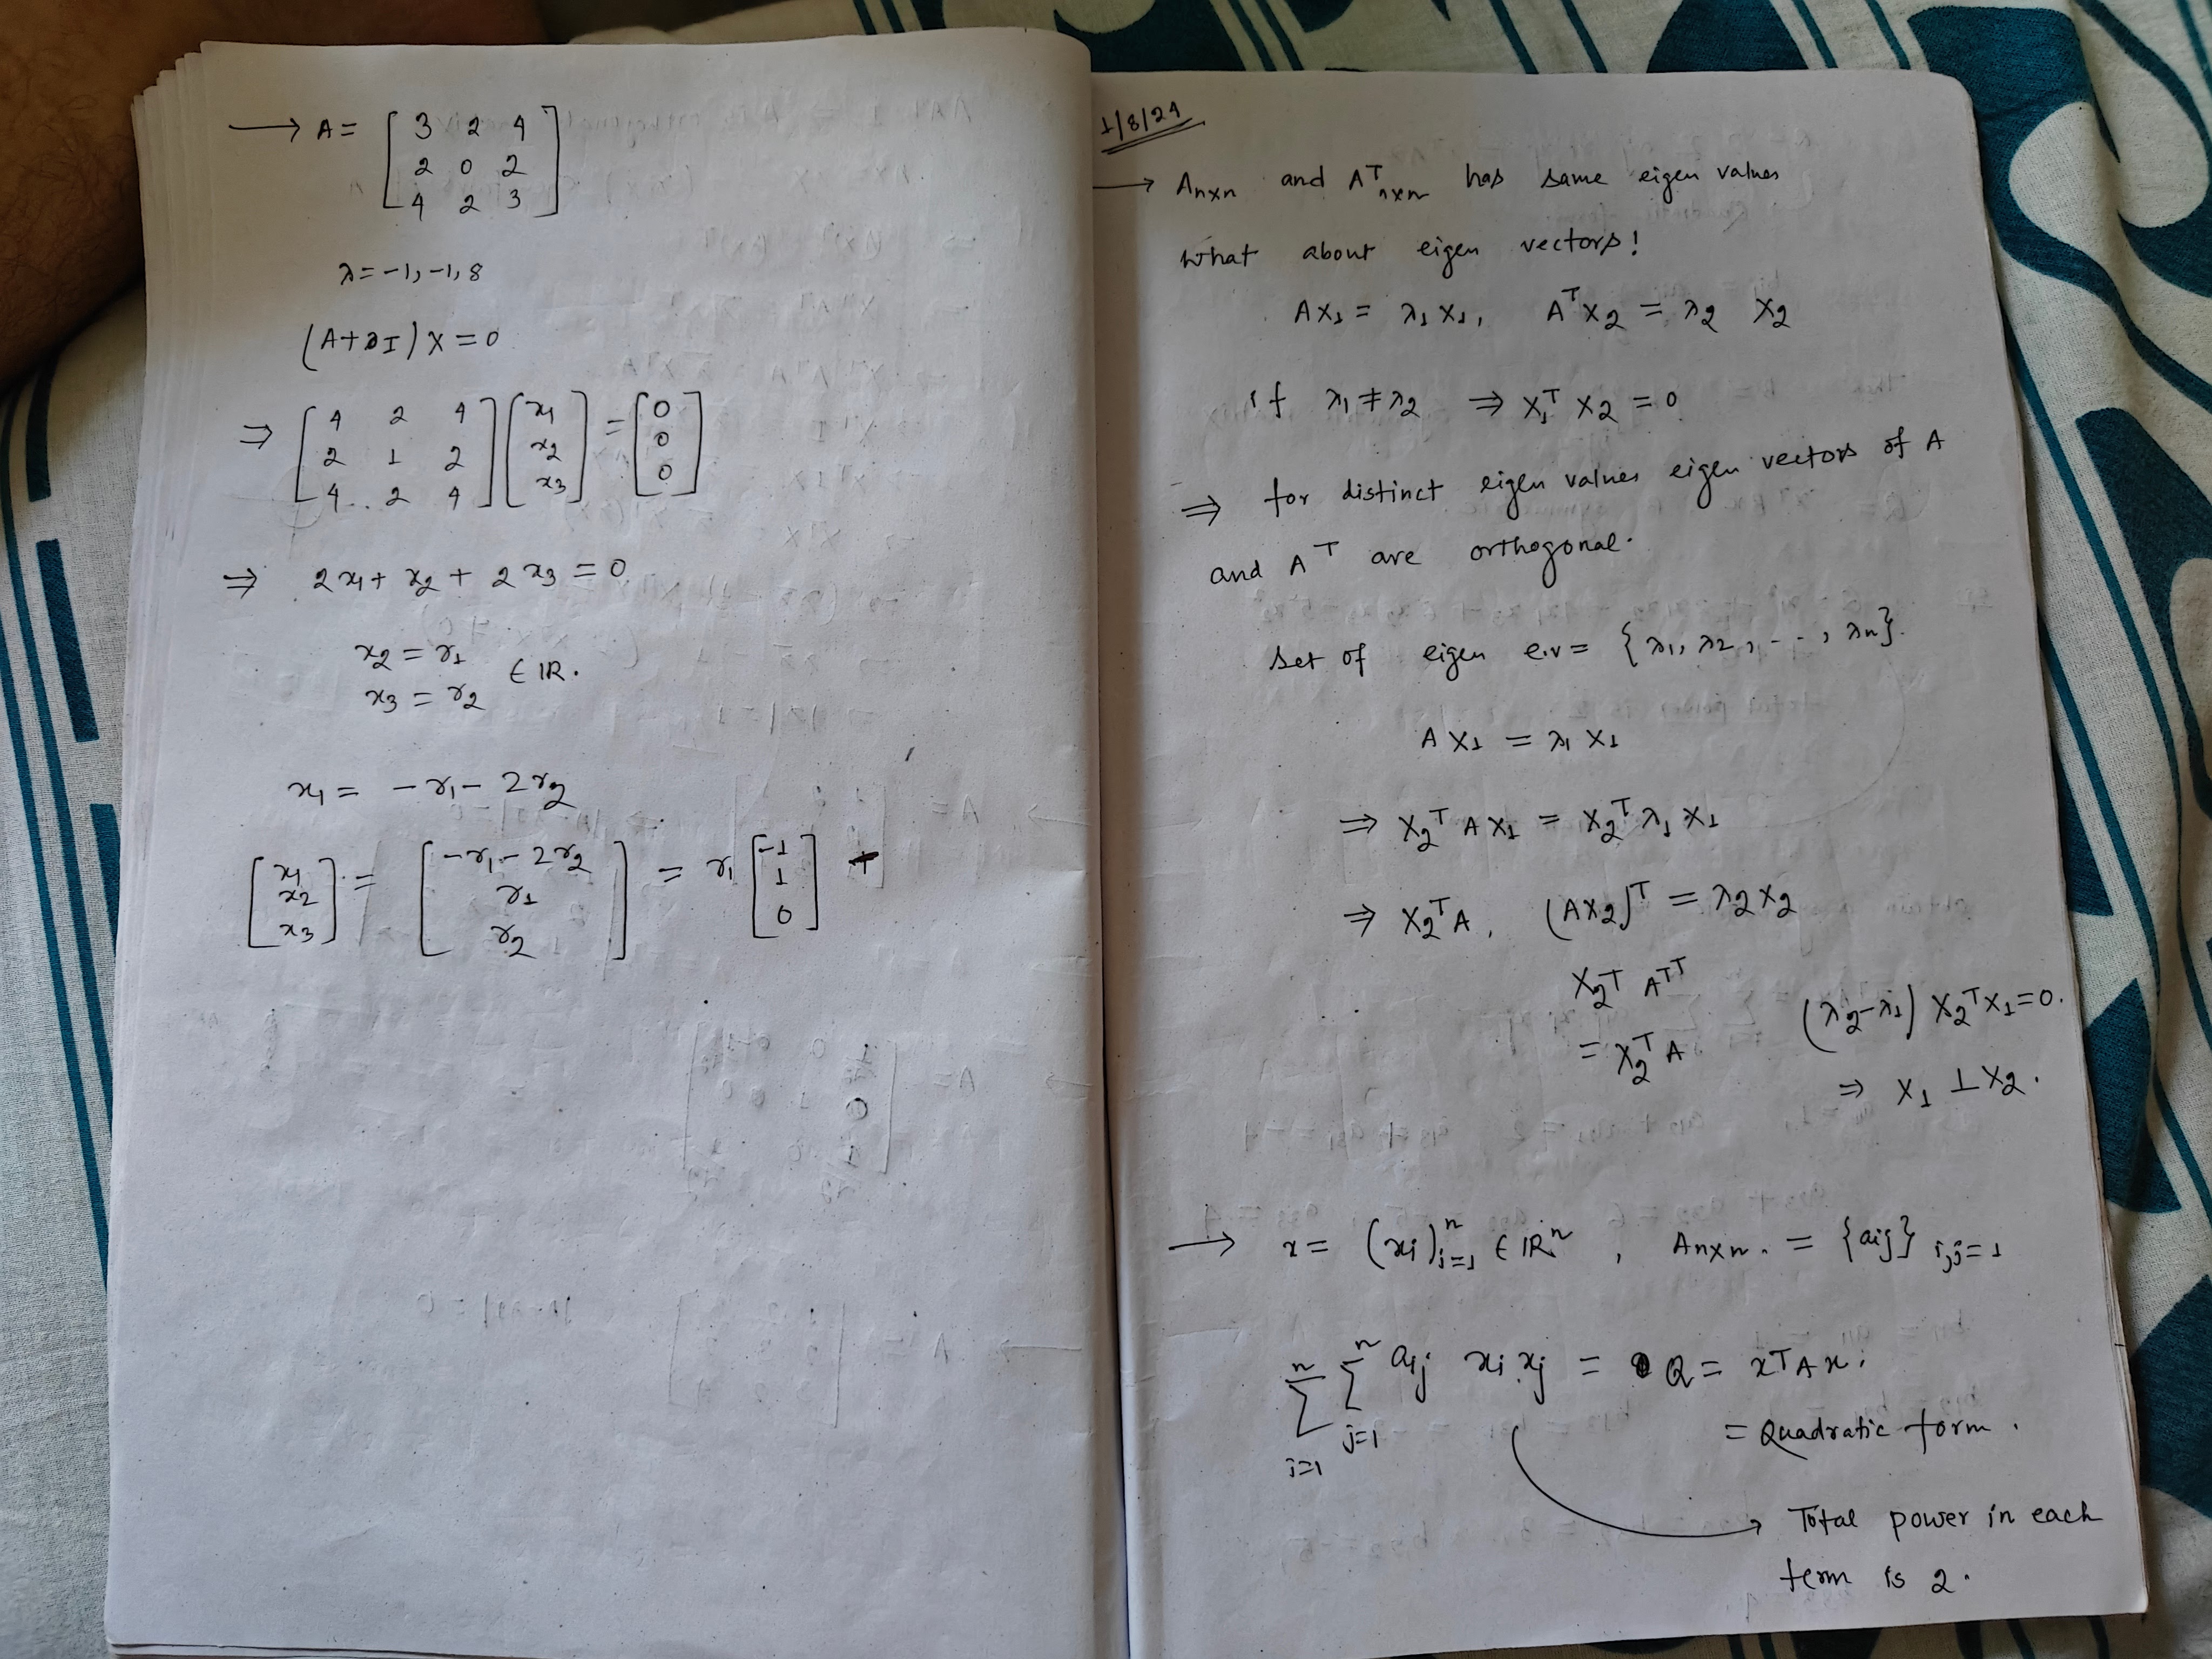 → A = [ 3 2 4
2 0 2
4 2 3 ]
λ = -1, -1, 8
(A+λI) X = 0
⇒ [ 4 2 4 ] [ x1 ] = [ 0 ]
[ 2 1 2 ] [ x2 ] [ 0 ]
[ 4 2 4 ] [ x3 ] [ 0 ]
⇒ 2x1 + x2 + 2x3 = 0
x2 = r1
∈ IR.
x3 = r2
x1 = -r1 - 2r2
[ x1 ] = [ -r1 - 2r2 ] = r1 [ -1 ] +
[ x2 ] [ r1 ] [ 1 ]
[ x3 ] [ r2 ] [ 0 ]
1/8/24
→ Anxn and A^T nxn has same eigen values
What about eigen vectors!
AX1 = λ1 X1, A^T X2 = λ2 X2
if λ1 ≠ λ2 ⇒ X1^T X2 = 0
⇒ for distinct eigen values eigen vectors of A
and A^T are orthogonal.
Set of eigen e.v = {λ1, λ2, --, λn}.
A X1 = λ1 X1
⇒ X2^T A X1 = X2^T λ1 X1
⇒ X2^T A, (AX2)^T = λ2 X2
X2^T A^TT
(λ2-λ1) X2^T X1 = 0.
= X2^T A
⇒ X1 ⊥ X2.
→ x = (xi)^n i=1 ∈ IR^n, Anxn. = {aij} i,j=1
n Σ i=1 n Σ j=1 aij xi xj = Q = x^T A x.
= Quadratic form.
→ Total power in each
term is 2.